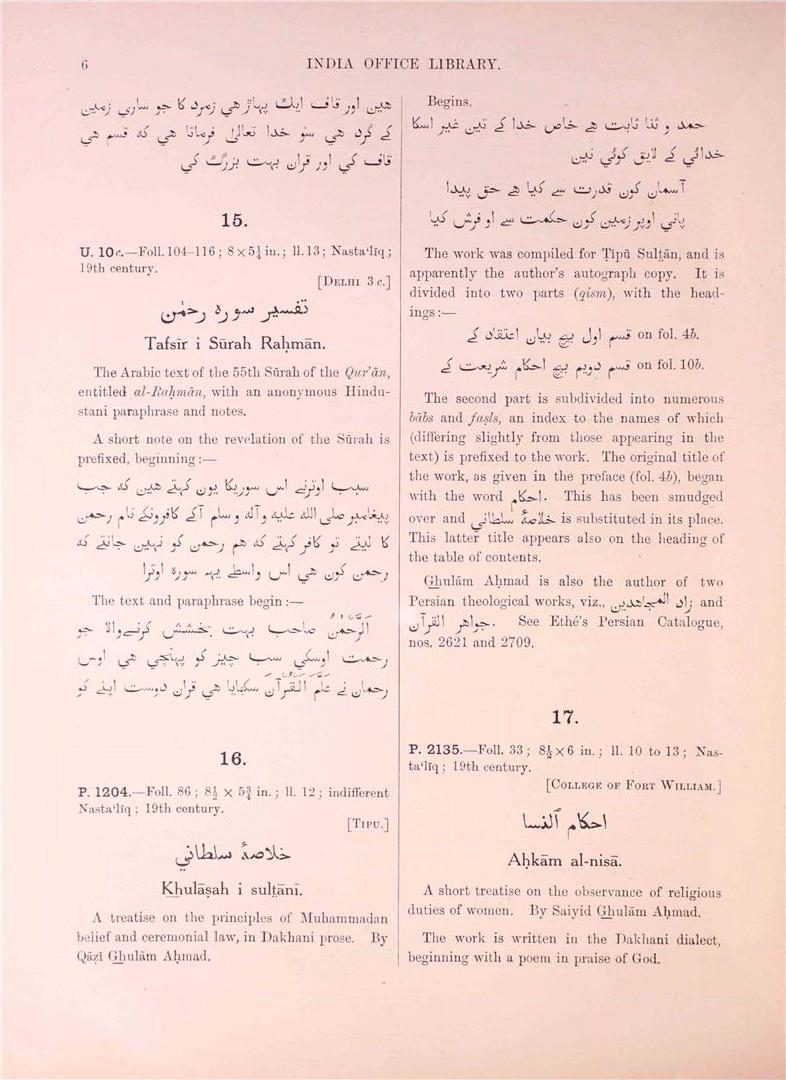 6
INDIA OFFICE LIBRARY.
هين اور قاف ايك پہاڑ هي زمرد كا جو ساري زمين
كے گرد هي سنو خدا تعالیٰ فرماتا هي كه قسم هي
قاف كي اور قران بہت بزرگ كي
15.
U. 10c.—Foll. 104–116; 8 × 5½ in.; ll. 13; Nasta‘līq;
19th century.
[DELHI 3 c.]
تفسير سوره رحمٰن
Tafsīr i Sūrah Raḥmān.
The Arabic text of the 55th Sūrah of the Qur’ān,
entitled al-Raḥmān, with an anonymous Hindu-
stani paraphrase and notes.
A short note on the revelation of the Sūrah is
prefixed, beginning:—
سبب اوترنے اس سوريكا يون كہتے هين كه جب
پيغامبر صلی الله عليه وآله و سلم آگے كافرونكے نام رحمن
كا ليتے تو كافر كہتے كه هم رحمن كو نہين جانتے كه
رحمن كون هي اس واسطے يہه سورة اوترا
The text and paraphrase begin:—
الرَّحْمٰنُ صاحب بہت بخشش كرنےوالا جو
رحمت اوسكي سب چيز كو پہنچي هي اوس
رحمان نے عَلَّمَ الْقُرْآنَ سكهايا هي قران دوست اپنے كو
16.
P. 1204.—Foll. 86; 8½ × 5¾ in.; ll. 12; indifferent
Nasta‘līq; 19th century.
[TIPU.]
خلاصهٔ سلطاني
Khulāṣah i sulṭānī.
A treatise on the principles of Muhammadan
belief and ceremonial law, in Dakhani prose. By
Qāẓī Ghulām Aḥmad.
Begins.
حمد و ثنا ثابت هے خاص خدا كے تين غير اسكا
خدائي كے لايق كوئي نين
آسمان كون قدرت سے كيا هے حق پيدا
پاني اوپر زمين كون حكمت سے او فرش كيا
The work was compiled for Ṭīpū Sulṭān, and is
apparently the author's autograph copy. It is
divided into two parts (qism), with the head-
ings:—
قسم اول بيچ بيان اعتقاد كے on fol. 4b.
قسم دويم بيچ احكام شريعت كے on fol. 10b.
The second part is subdivided into numerous
bābs and faṣls, an index to the names of which
(differing slightly from those appearing in the
text) is prefixed to the work. The original title of
the work, as given in the preface (fol. 4b), began
with the word احكام. This has been smudged
over and خلاصهٔ سلطاني is substituted in its place.
This latter title appears also on the heading of
the table of contents.
Ghulām Aḥmad is also the author of two
Persian theological works, viz., زاد المجاهدين and
جواهر القرآن. See Ethé's Persian Catalogue,
nos. 2621 and 2709.
17.
P. 2135.—Foll. 33; 8½ × 6 in.; ll. 10 to 13; Nas-
ta‘līq; 19th century.
[COLLEGE OF FORT WILLIAM.]
احكام النسا
Aḥkām al-nisā.
A short treatise on the observance of religious
duties of women. By Saiyid Ghulām Aḥmad.
The work is written in the Dakhani dialect,
beginning with a poem in praise of God.